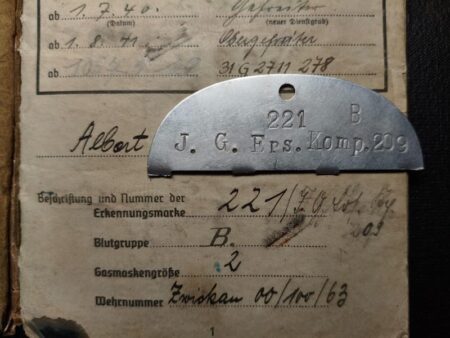 ab 1.7.40. Gefreiter
(Datum) (neuer Dienstgrad)
ab 1.8.41 Obergefreiter
ab 31 G 2711 278
221 B
J. G. Ers. Komp. 209
Albert
Beschriftung und Nummer der
Erkennungsmarke 221/
209
Blutgruppe B.
Gasmaskengröße 2
Wehrnummer Zwickau 00/100/63
1